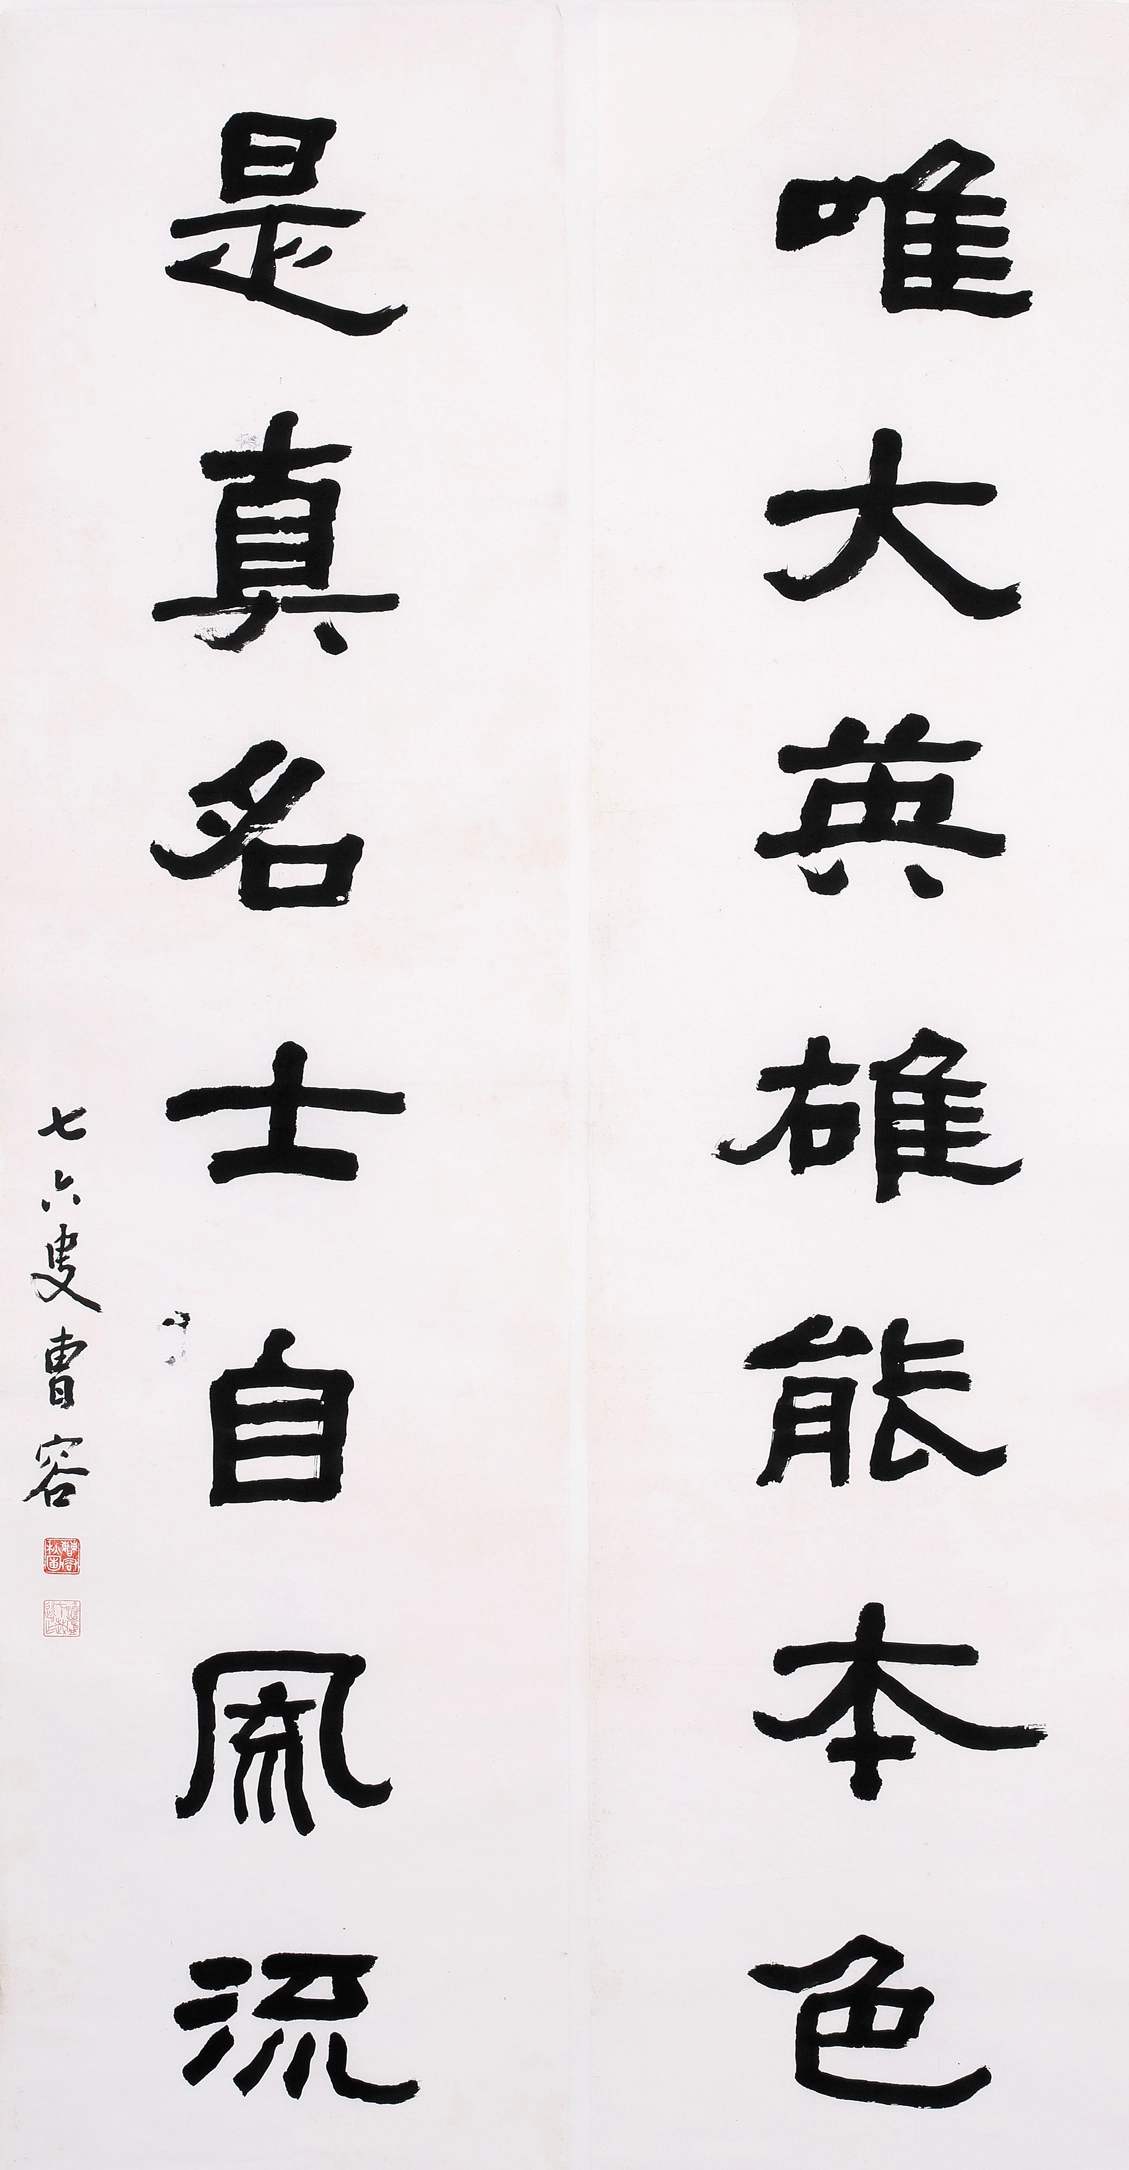 唯大英雄能本色
是真名士自風流
七六叟曹容